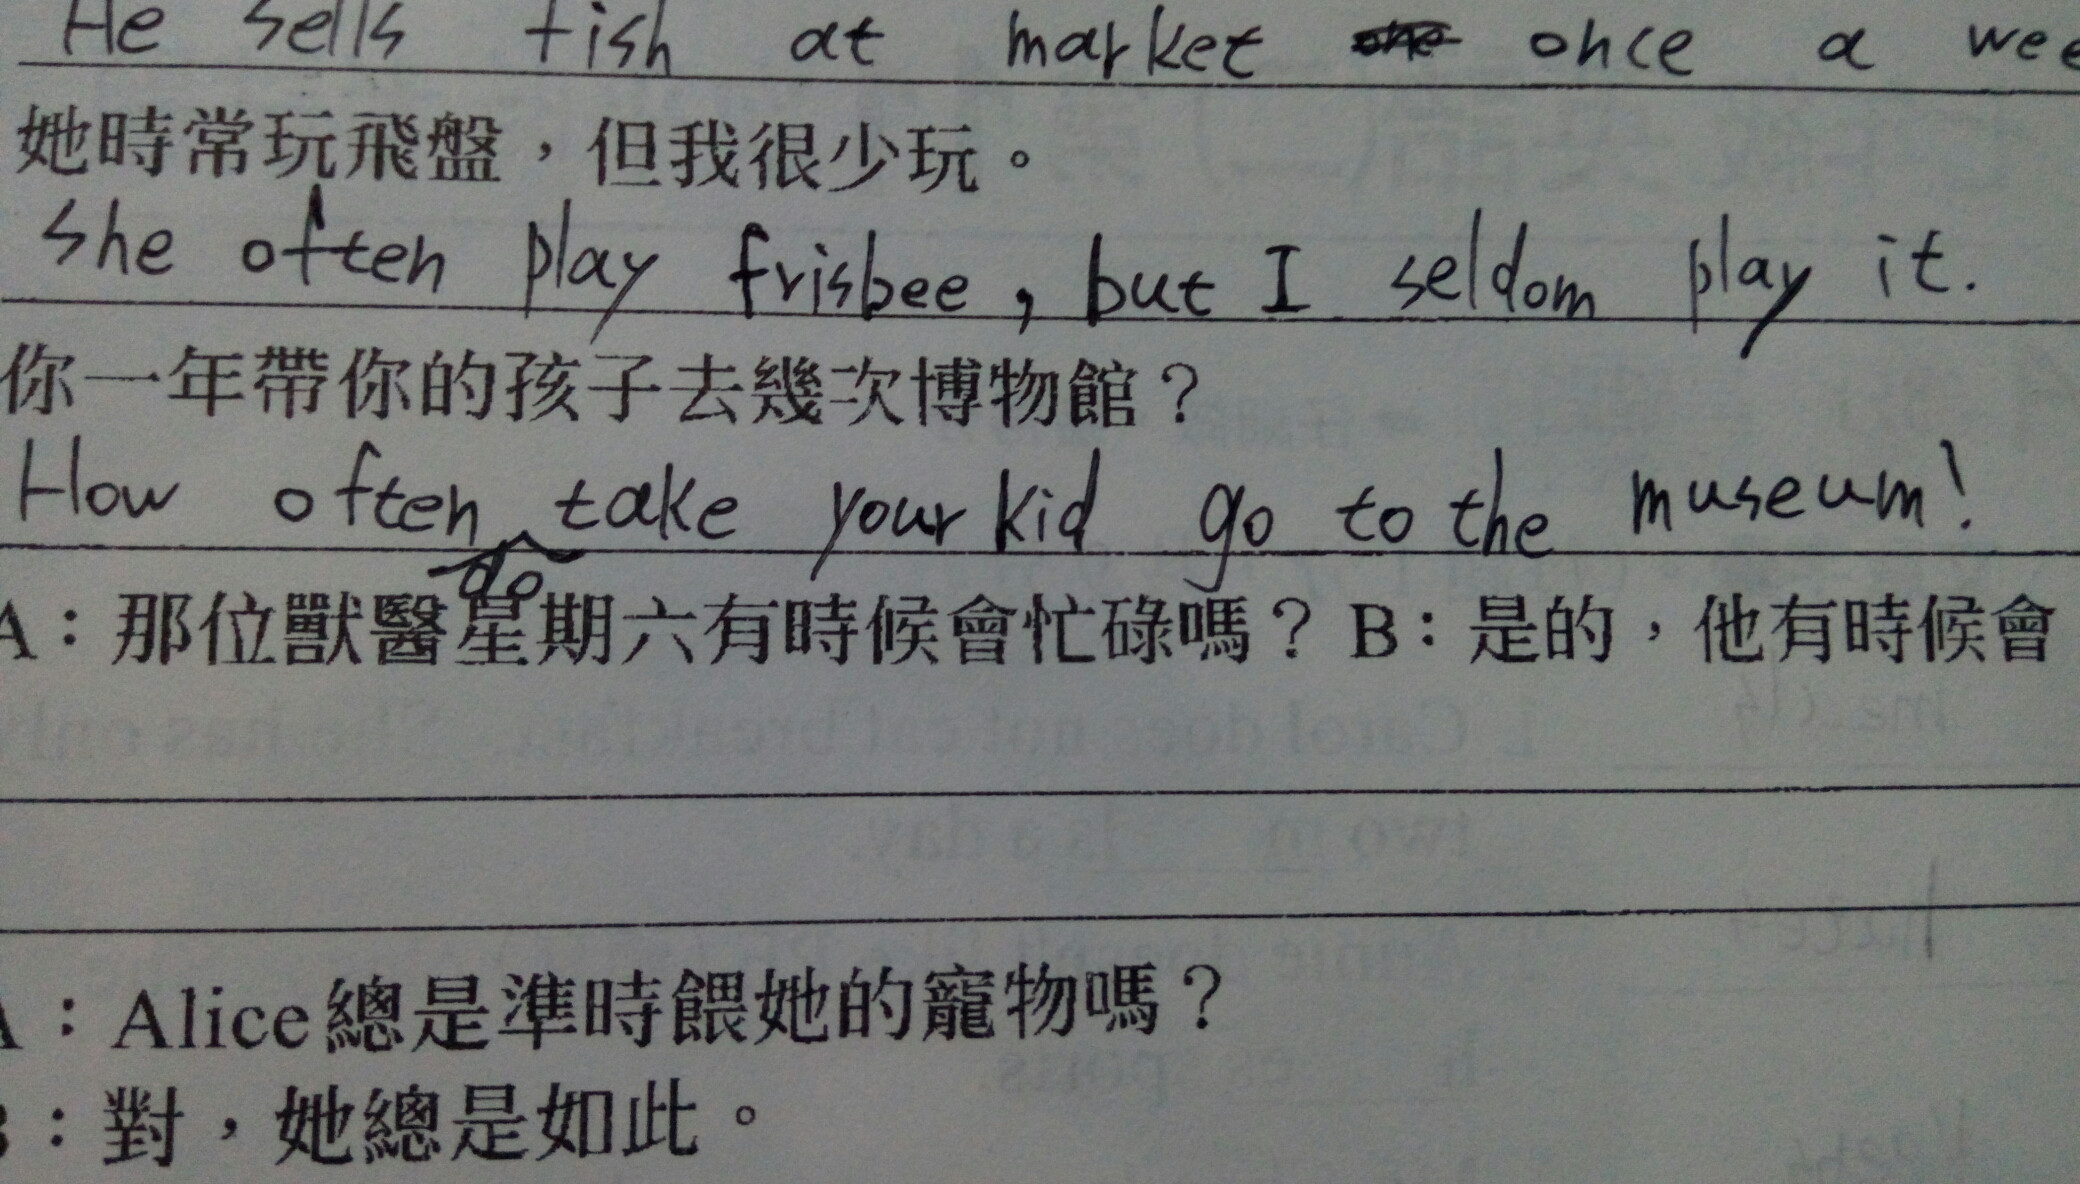 He sells fish at market once a wee
她時常玩飛盤，但我很少玩。
She often play frisbee, but I seldom play it.
你一年帶你的孩子去幾次博物館？
How often do take your kid go to the museum!
A：那位獸醫星期六有時候會忙碌嗎？B：是的，他有時候會
A：Alice總是準時餵她的寵物嗎？
B：對，她總是如此。